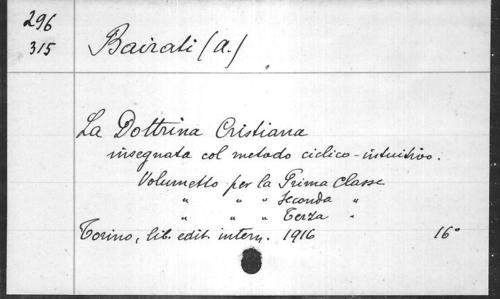 296
315
Bairati (A.)
La Dottrina Cristiana
insegnata col metodo ciclico-intuitivo.
Volumetto per la Prima Classe
" " " Seconda "
" " " Terza "
Torino, lib. edit. intern. 1916 16°